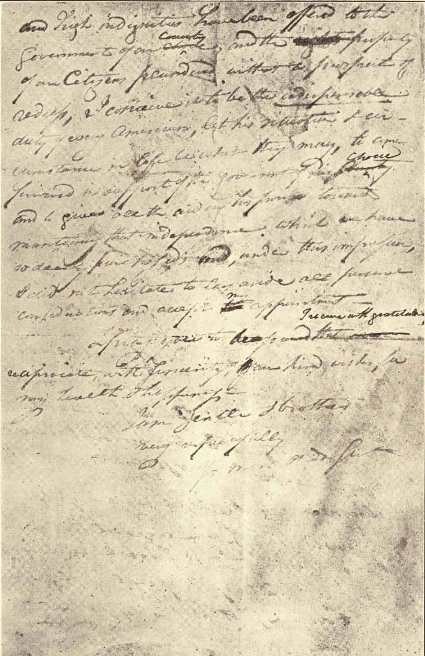 and high indignities have been offered to the
Government of our Country and the property
of our Citizens plundered without a prospect of
redress, I conceive it to be the indispensable
duty of every American, let his situation & cir-
cumstances in life be what they may, to come
forward in support of the Government of his choice
and to give all the aid in his power towards
maintaining that independence which we have
so dearly purchased; and, under this impression,
I did not hesitate to lay aside all personal
considerations and accept my appointment
I receive with gratitude,
reciprocate with sincerity your kind wishes for
my health & happiness
I am Gentlemen & brothers
very respectfully